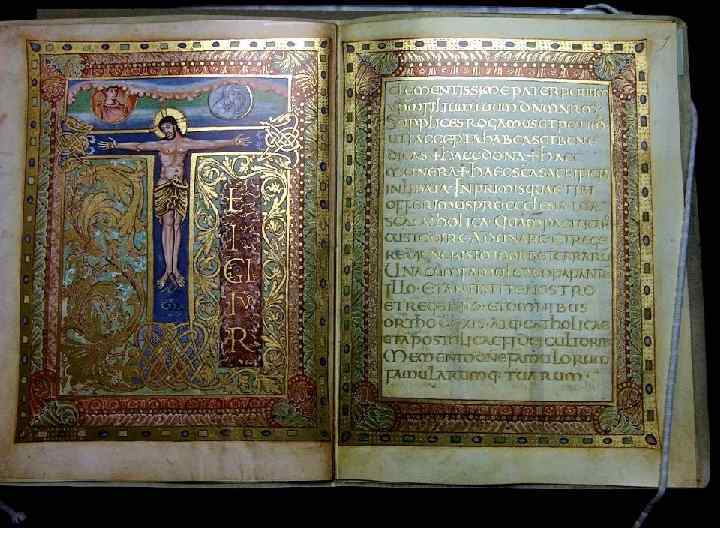 T
E
I
GI
TV
R
CLEMENTISSIME PATER PER IHM
XPM FILIUM TUUM DNM NRM
SUPPLICES ROGAMUS ET PETIM
UTI ACCEPTA HABEAS ET BENE
DICAS + HAEC DONA + HAEC
MUNERA + HAEC SCA SACRIFICIA
INLIBATA IN PRIMIS QUAE TIBI
OFFERIMUS PRO ECCLESIA TUA
SCA CATHOLICA QUAM PACIFICARE
CUSTODIRE ADUNARE ET REGE
RE DIGNERIS TOTO ORBE TERRARU
UNA CUM FAMULO TUO PAPA NRO
ILLO ET ANTISTITE NOSTRO
ET REGE ET OMNIBUS
ORTHODOXIS ATQ CATHOLICAE
ET APOSTOLICAE FIDEI CULTORIB
MEMENTO DNE FAMULORUM
FAMULARUMQ TUARUM